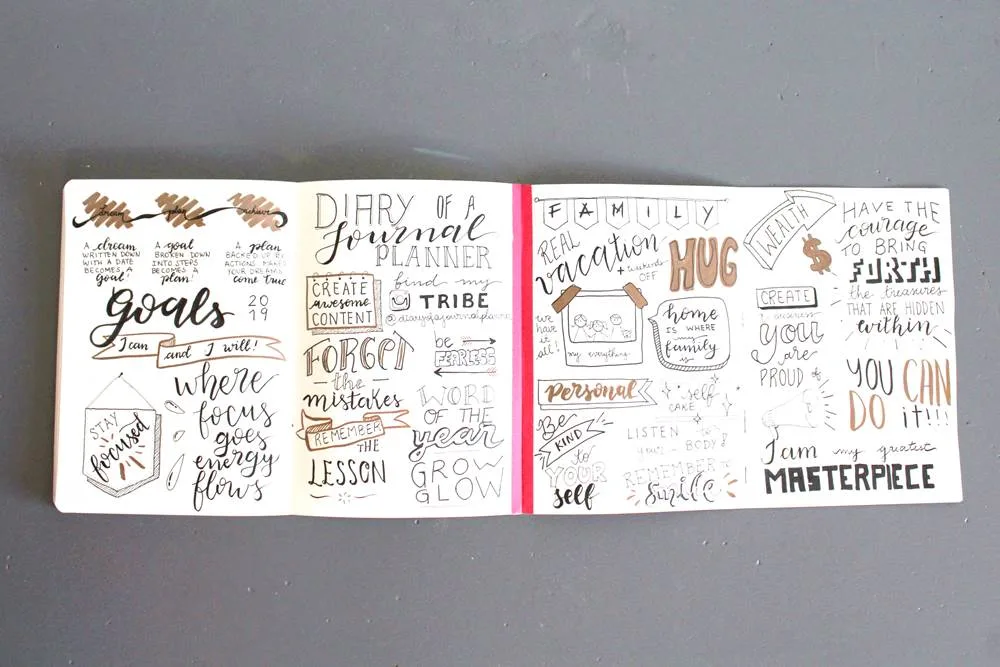 dream plan achieve
A dream
WRITTEN DOWN
WITH A DATE
BECOMES A
goal!
A goal
BROKEN DOWN
INTO STEPS
BECOMES A
plan!
A plan
BACKED UP BY
ACTIONS MAKES
YOUR DREAMS
come true
Goals
20
19
I can and I will!
STAY
focused
where
focus
goes
energy
flows
DIARY OF A
Journal
PLANNER
CREATE
awesome
CONTENT
find my
TRIBE
@diaryofajournalplanner
FORGET
the
mistakes
REMEMBER
THE
LESSON
be
FEARLESS
WORD
OF THE
year
GROW
GLOW
FAMILY
REAL
vacation
+ weekends
OFF
HUG
we
have
it
all!
my everything
home
IS WHERE
family
is
Personal
self
CARE
Be
KIND
to
YOUR
self
LISTEN to
your BODY!
REMEMBER TO
Smile
WEALTH
$
CREATE
a business
you
are
PROUD of
HAVE THE
courage
TO BRING
FORTH
the treasures
THAT ARE HIDDEN
within
YOU CAN
DO it!!!
I am my greatest
MASTERPIECE